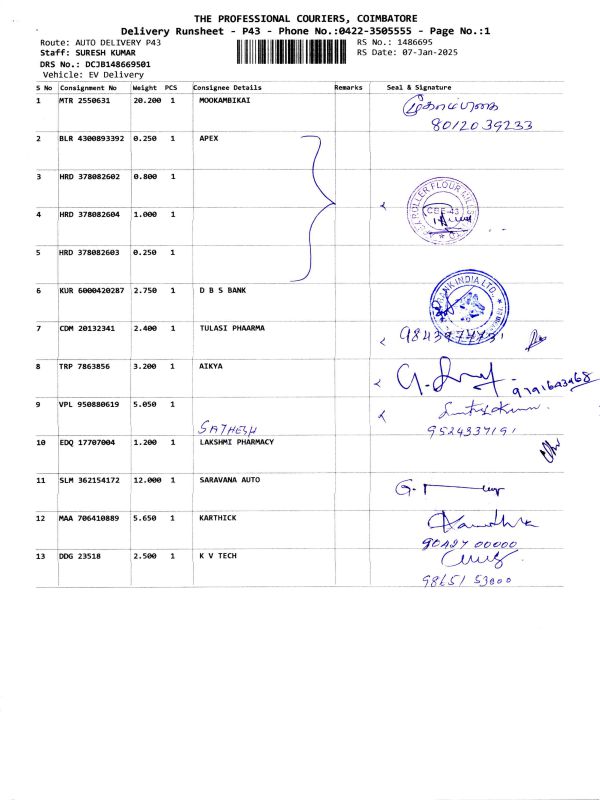 THE PROFESSIONAL COURIERS, COIMBATORE
Delivery Runsheet - P43 - Phone No.:0422-3505555 - Page No.:1
Route: AUTO DELIVERY P43 RS No.: 1486695
Staff: SURESH KUMAR RS Date: 07-Jan-2025
DRS No.: DCJB148669501
Vehicle: EV Delivery
S No Consignment No Weight PCS Consignee Details Remarks Seal & Signature
1 MTR 2550631 20.200 1 MOOKAMBIKAI
8012039233
2 BLR 4300893392 0.250 1 APEX
3 HRD 378082602 0.800 1
ROLLER FLOUR MILLS
4 HRD 378082604 1.000 1
5 HRD 378082603 0.250 1
BANK INDIA LTD.
6 KUR 6000420287 2.750 1 D B S BANK
7 CDM 20132341 2.400 1 TULASI PHAARMA
8 TRP 7863856 3.200 1 AIKYA
9 VPL 950880619 5.050 1
SATHESH 9524337191
10 EDQ 17707004 1.200 1 LAKSHMI PHARMACY
11 SLM 362154172 12.000 1 SARAVANA AUTO
12 MAA 706410889 5.650 1 KARTHICK
90427 00000
13 DDG 23518 2.500 1 K V TECH
98651 53000